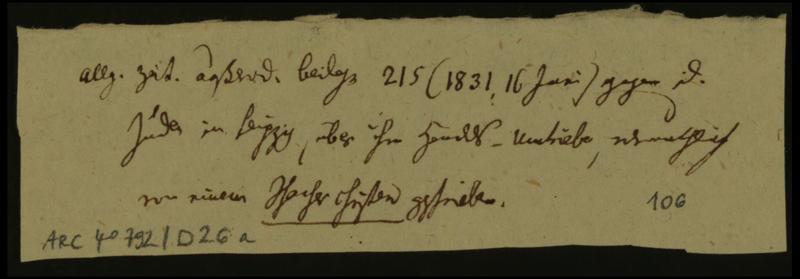 allg. Zeit. außerord. Beilage 215 (1831, 16 Juni) gegen d.
Juden in Leipzig, über ihre Handels-Umtriebe, vermuthlich
von einem Schacher Christen geschrieben.
106
ARC 4° 792 / D26a